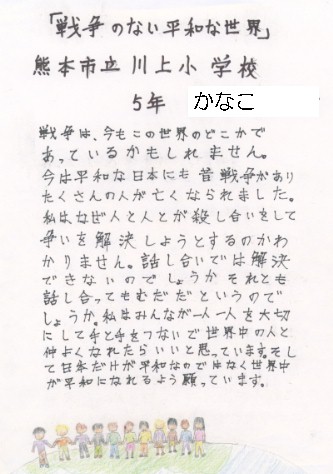 「戦争のない平和な世界」
熊本市立川上小学校
5年 かなこ
戦争は、今もこの世界のどこかで
あっているかもしれません。
今は平和な日本にも昔戦争があり
たくさんの人が亡くなられました。
私はなぜ人と人とが殺し合いをして
争いを解決しようとするのかわ
かりません。話し合いでは解決
できないのでしょうかそれとも
話し合ってもむだだというので
しょうか。私はみんなが一人一人を大切
にして手と手をつないで世界中の人と
仲よくなれたらいいと思っています。そし
て日本だけが平和なのではなく世界中
が平和になれるよう願っています。